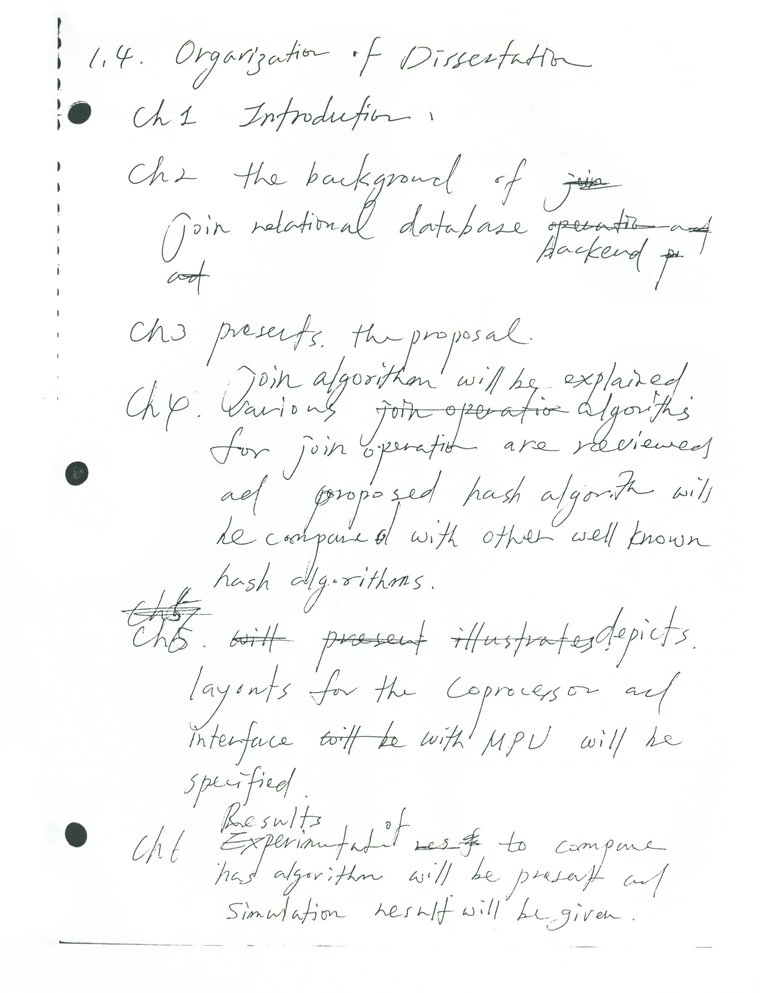 1.4. Organization of Dissertation
Ch 1 Introduction.
Ch 2 the background of join
join relational database operation and
backend p
ad
Ch3 presents. the proposal.
Join algorithm will be explained
Ch 4. Various join operatio algoriths
for join operation are reviewed
ad proposed hash algorith will
be compared with other well known
hash algorithms.
Ch5
Ch5. will present illustrates depicts.
layouts for the Coprocessor ad
interface will be with MPU will be
specified.
Results of
Ch 6 to compare
has algorithm will be present ad
Simulation result will be given.